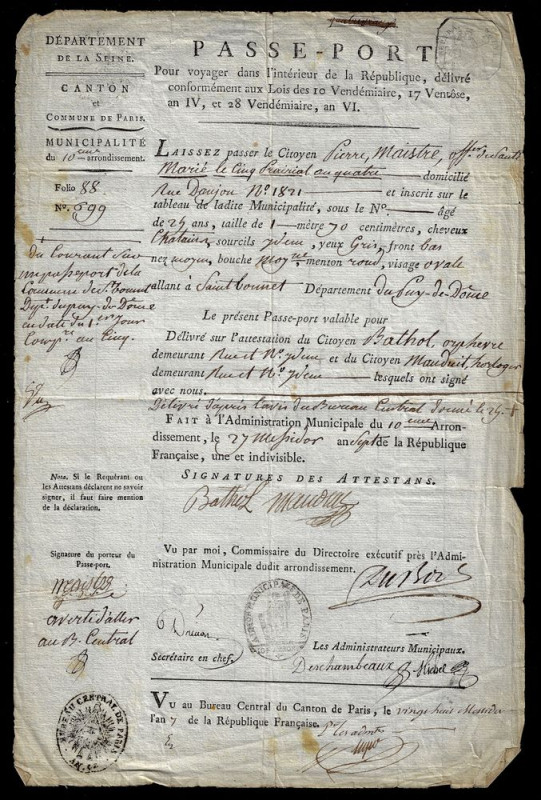 DÉPARTEMENT
DE LA SEINE.
CANTON
et
COMMUNE DE PARIS.
MUNICIPALITÉ
du 10eme arrondissement.
Folio 88
N.° 699
PASSE-PORT
Pour voyager dans l'intérieur de la République, délivré
conformément aux Lois des 10 Vendémiaire, 17 Ventôse,
an IV, et 28 Vendémiaire, an VI.
LAISSEZ passer le Citoyen Pierre, Maistre, offer de Santé
Marié le Cinq Prairial an quatre domicilié
Rue Danjou N° 1821 et inscrit sur le
tableau de ladite Municipalité, sous le N.° âgé
de 29 ans, taille de 1 mètre 70 centimètres, cheveux
Chatains sourcils ydem, yeux Gris, front bas
nez moyen, bouche moyne menton rond, visage ovale
allant à Saint bonnet Département du Puy-de-Dôme
Le présent Passe-port valable pour
Délivré sur l'attestation du Citoyen Bathol, orphevre
demeurant Rue et N° ydem et du Citoyen Mauduit, horloger
demeurant Rue et N° ydem lesquels ont signé
avec nous.
Délivré d'après l'avis du Bureau Central donné le
FAIT à l'Administration Municipale du 10eme Arron-
dissement, le 27 Messidor an Sept de la République
Française, une et indivisible.
SIGNATURES DES ATTESTANS.
Bathol
Vu par moi, Commissaire du Directoire exécutif près l'Admi-
nistration Municipale dudit arrondissement.
Secrétaire en chef.
Les Administrateurs Municipaux.
Deschambeaux
VU au Bureau Central du Canton de Paris, le vingt huit Messidor
l'an 7 de la République Française.
Du Courant Sur
un passeport de la
Commune de St Bonnet
Dept du puy-de-Dôme
en date du 1er Jour
Compre an Cinq.
Nota. Si le Requérant ou
les Attestans déclarent ne savoir
signer, il faut faire mention
de la déclaration.
Signature du porteur du
Passe-port.
maistre
averti d'aller
au B. Central
BUREAU CENTRAL DE PARIS